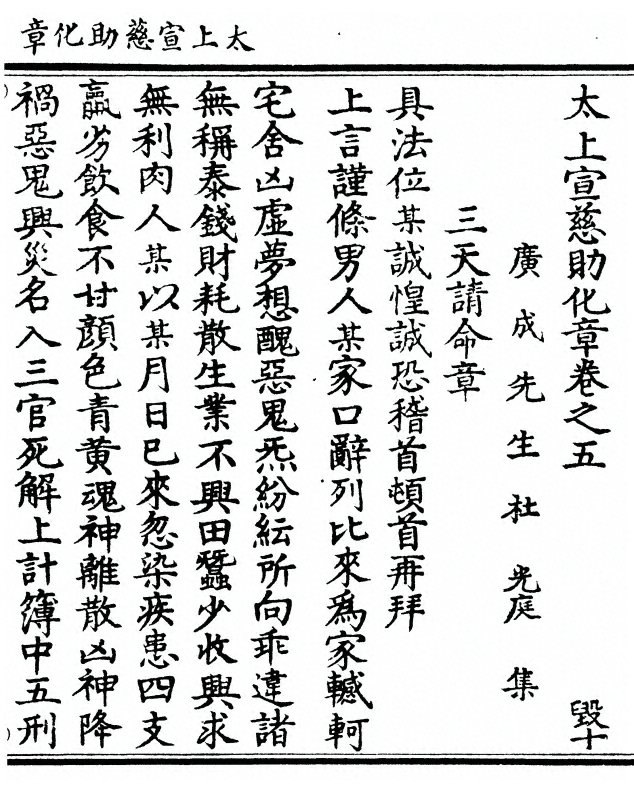 太上宣慈助化章
太上宣慈助化章卷之五 毀十
廣成先生杜光庭集
三天請命章
具法位某誠惶誠恐稽首頓首再拜
上言謹條男人某家口辭列比來爲家轗軻
宅舍凶虛夢想醜惡鬼炁紛紜所向乖違諸
無稱泰錢財耗散生業不興田蠶少收興求
無利肉人某以某月日已來忽染疾患四支
羸劣飲食不甘顔色青黄魂神離散凶神降
禍惡鬼興災名入三官死解上計簿中五刑